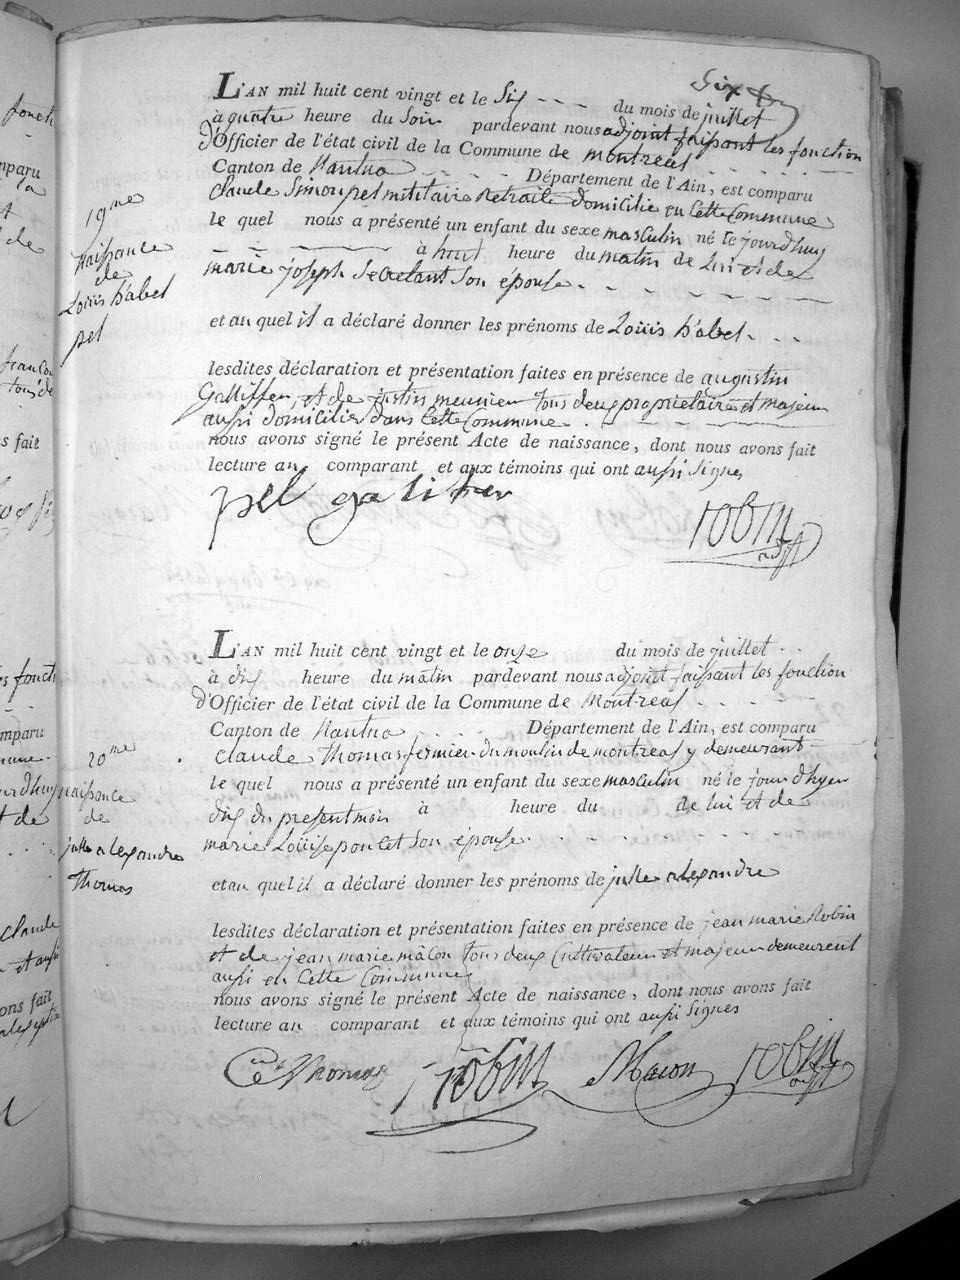 Six
L'AN mil huit cent vingt et le Six du mois de juillet
à quatre heure du Soir pardevant nous adjoint faisant les fonction
d'Officier de l'état civil de la Commune de montreal
Canton de Nantua Département de l'Ain, est comparu
Claude Simon pel militaire Retraité domicilié en Cette Commune
le quel nous a présenté un enfant du sexe masculin né le jourdhuy
à huit heure du matin de Lui et de
marie joseph Secretant Son épouse.
et au quel il a déclaré donner les prénoms de Louis h'abel.
lesdites déclaration et présentation faites en présence de augustin
Galliffer, et de justin meunier tous deux proprietaire et majeur
aussi domicilier dans Cette Commune.
nous avons signé le présent Acte de naissance, dont nous avons fait
lecture au comparant et aux témoins qui ont aussi Signes
pel
robin
adjt
19me
Naissance
de
Louis h'abel
pel
L'AN mil huit cent vingt et le onze du mois de juillet
à dix heure du matin pardevant nous adjoint faisant les fonction
d'Officier de l'état civil de la Commune de Montreal
Canton de Nantua Département de l'Ain, est comparu
Claude Thomas fermier du moulin de montreal y demeurant
le quel nous a présenté un enfant du sexe masculin né le jourdhyer
dix du present mois à heure du de lui et de
marie Louise poncet Son épouse
et au quel il a déclaré donner les prénoms de julle alexandre
lesdites déclaration et présentation faites en présence de jean marie Robin
et de jean marie mâcon tous deux Cultivateur et majeur demeurent
aussi en Cette Commune
nous avons signé le présent Acte de naissance, dont nous avons fait
lecture au comparant et aux témoins qui ont aussi Signes
Ce Thomas robin Macon robin
adjt
20me
naissance
de
julle alexandre
Thomas